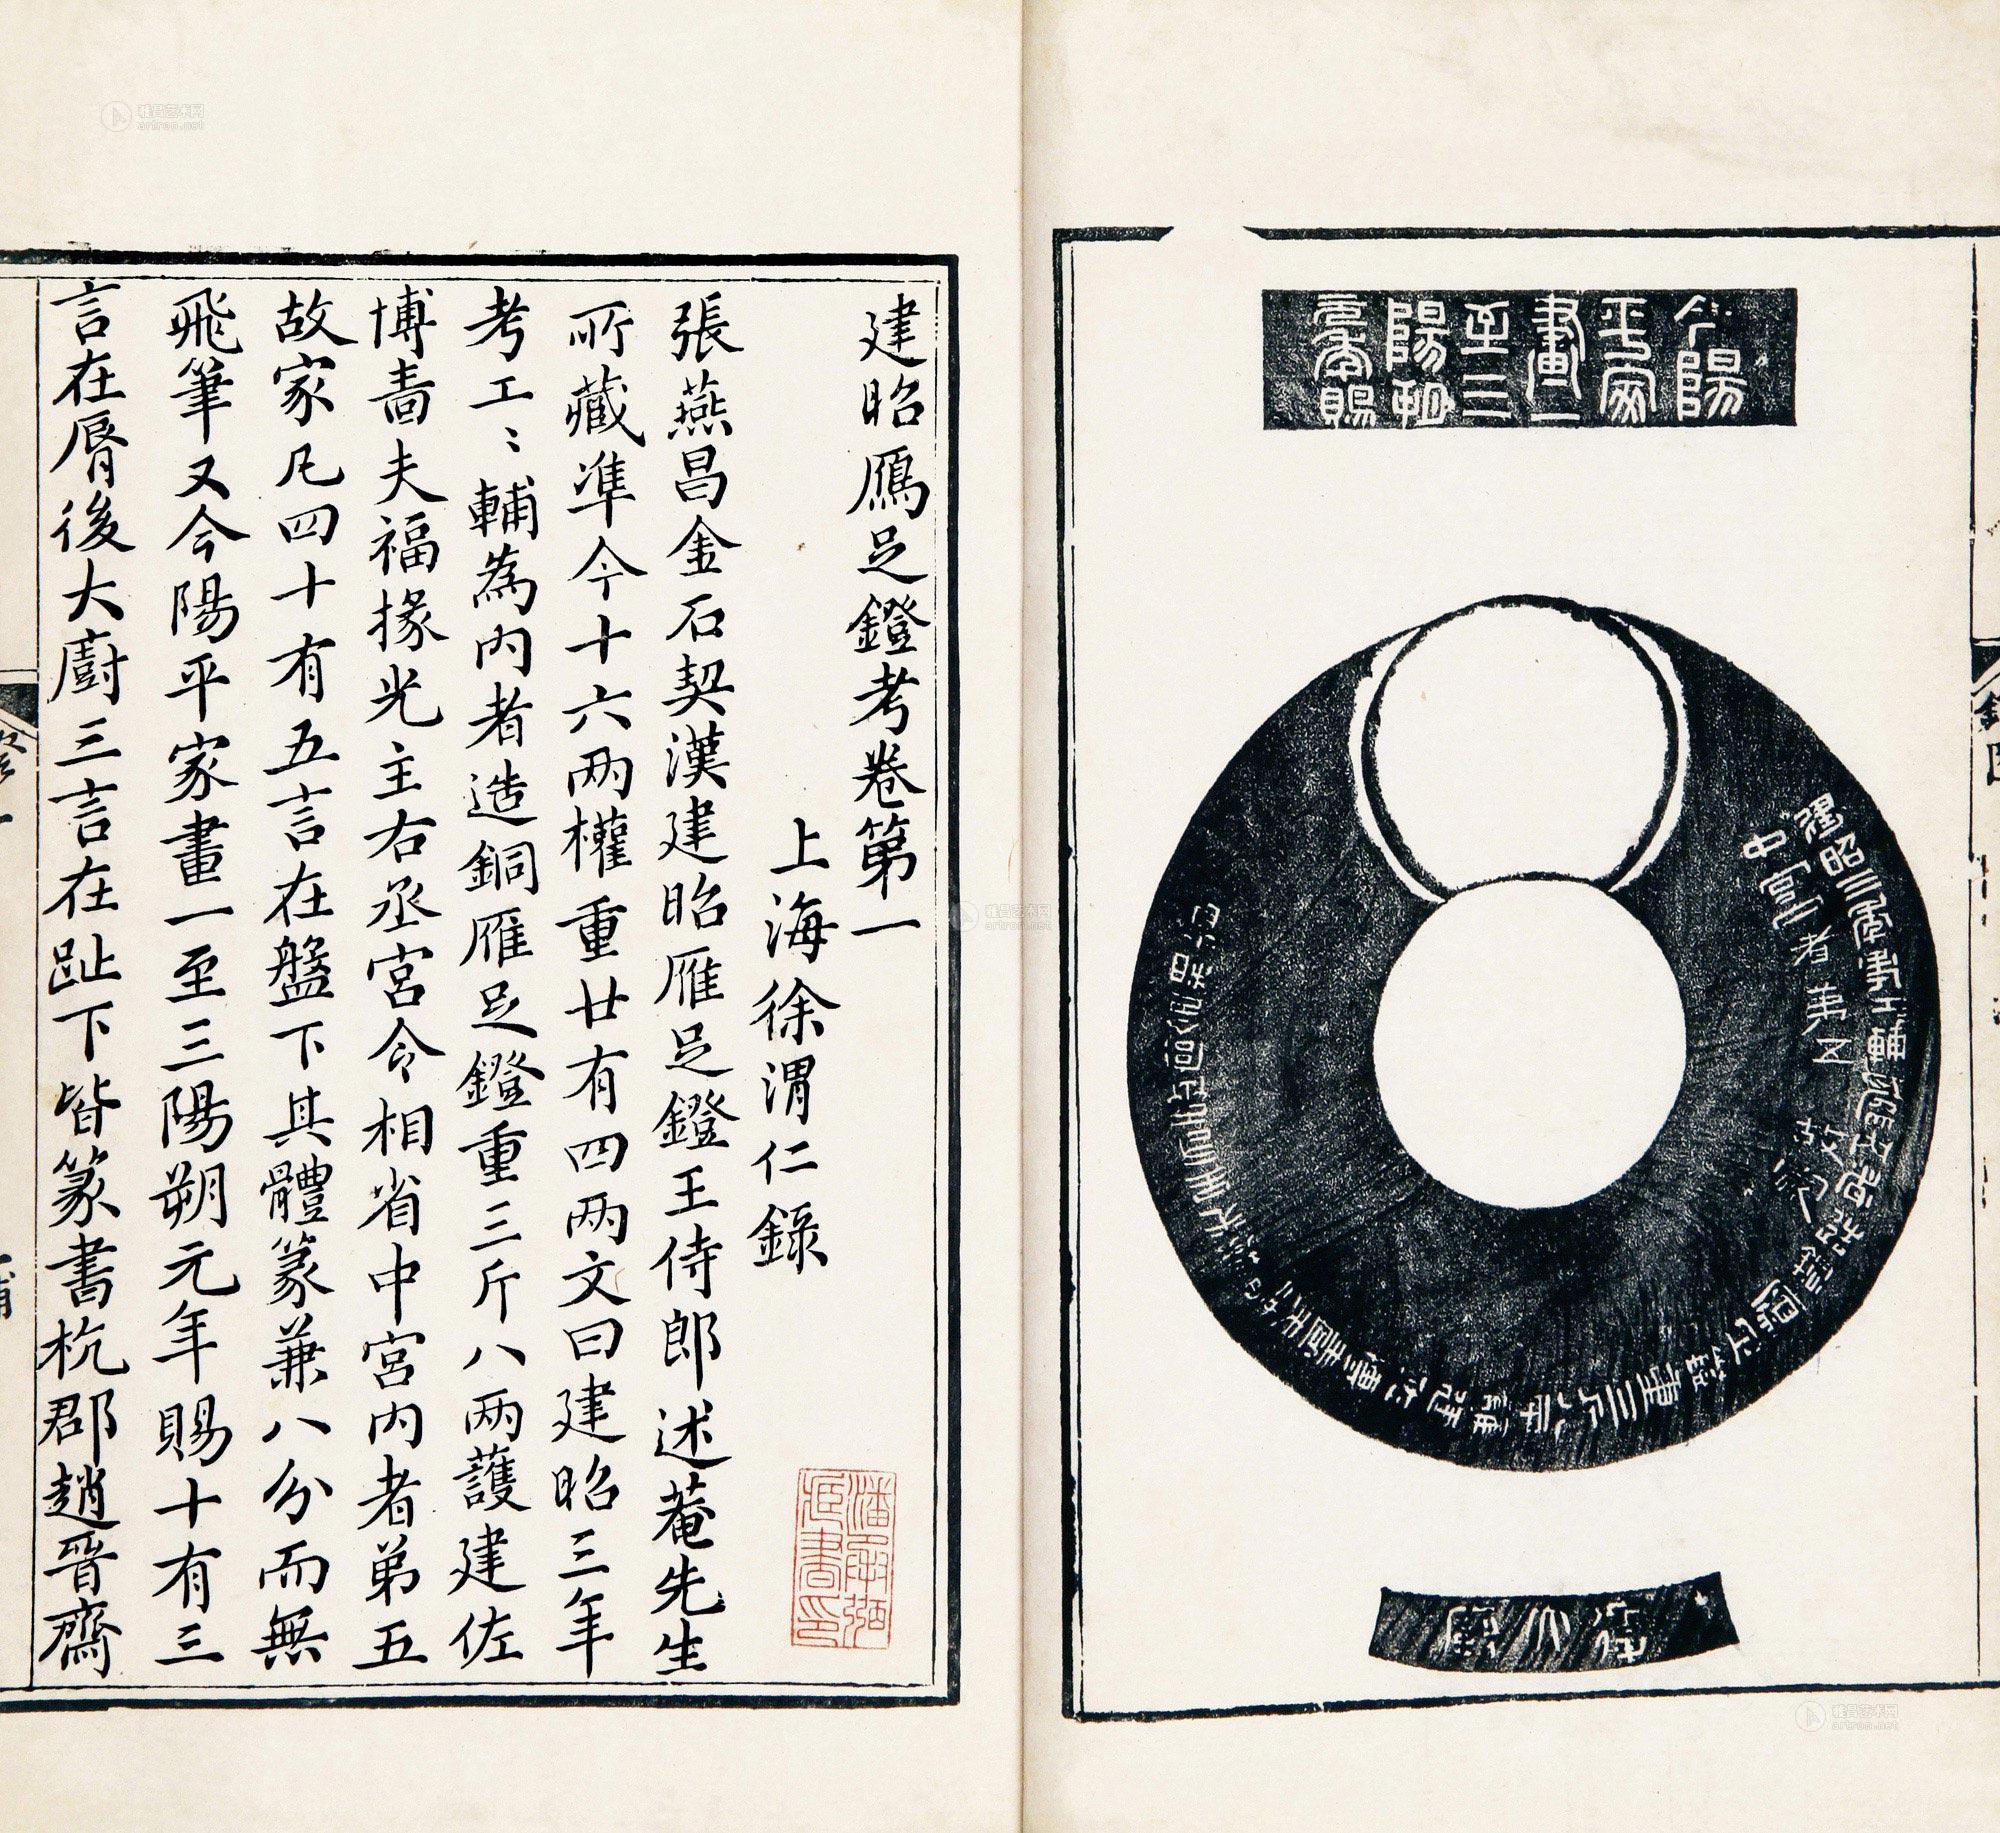 今陽
平家
畫一
至三
陽朔
元年賜
建昭三年考工輔為內者造銅雁足鐙重三斤八兩護建佐博嗇夫福掾光主右丞宮令相省
中宮內者弟五
故家
後大廚
建昭鴈足鐙考卷第一
上海徐渭仁錄
張燕昌金石契漢建昭雁足鐙王侍郎述菴先生
所藏準今十六兩權重廿有四兩文曰建昭三年
考工〻輔為內者造銅雁足鐙重三斤八兩護建佐
博嗇夫福掾光主右丞宮令相省中宮內者弟五
故家凡四十有五言在盤下其體篆兼八分而無
飛筆又今陽平家畫一至三陽朔元年賜十有三
言在脣後大廚三言在趾下皆篆書杭郡趙晉齋
雅昌艺术网
artron.net